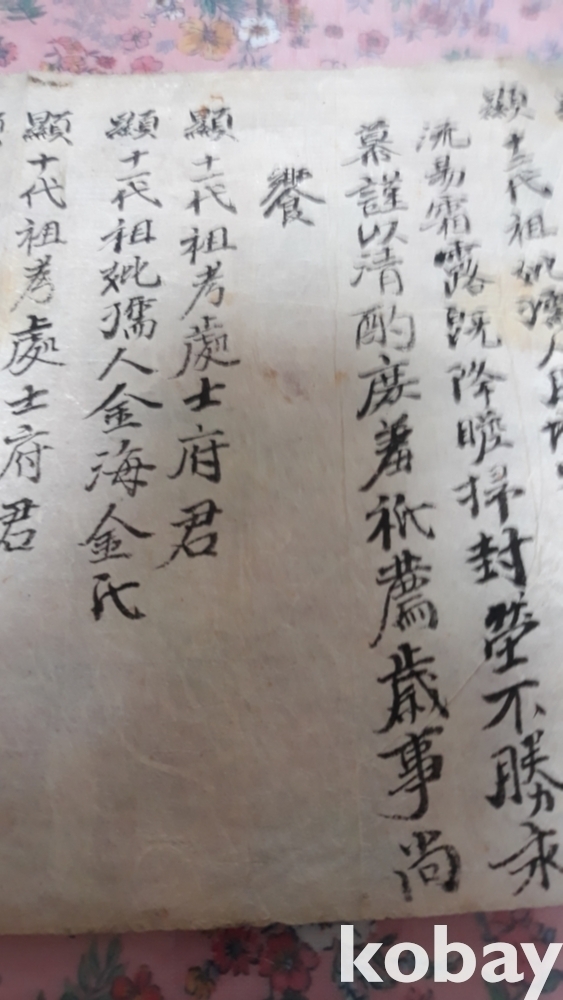 顯十二代祖妣孺人
流易霜露既降瞻掃封塋不勝永
慕謹以淸酌庶羞祇薦歲事尚
饗
顯十一代祖考處士府君
顯十一代祖妣孺人金海金氏
顯十代祖考處士府君
kobay